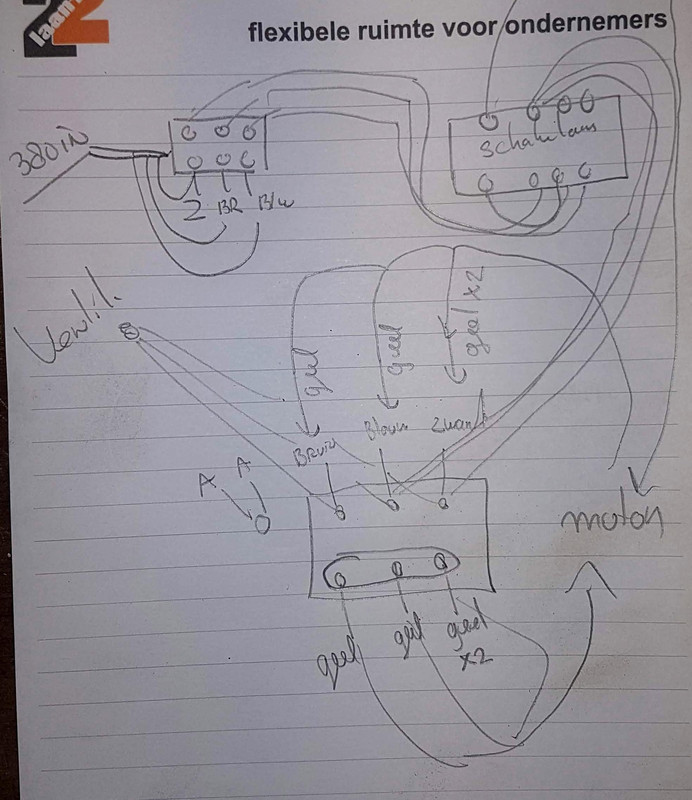 22
laan
flexibele ruimte voor ondernemers
380 in
Z BR Blw
schakelaar
Ventil.
geel
geel
geel x2
Bruin
Blauw
Zwart
A A
motor
geel
geel
geel
x2